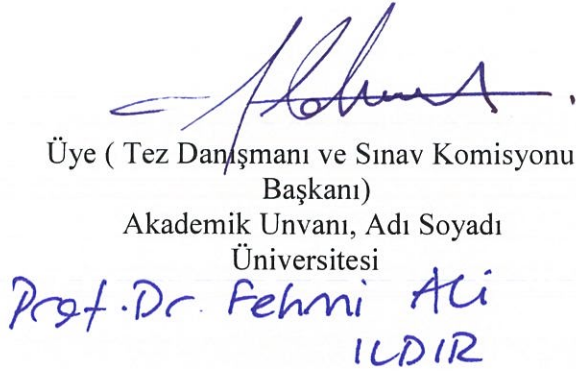 Üye ( Tez Danışmanı ve Sınav Komisyonu
Başkanı)
Akademik Unvanı, Adı Soyadı
Üniversitesi
Prof. Dr. Fehmi Ali
ILDIR